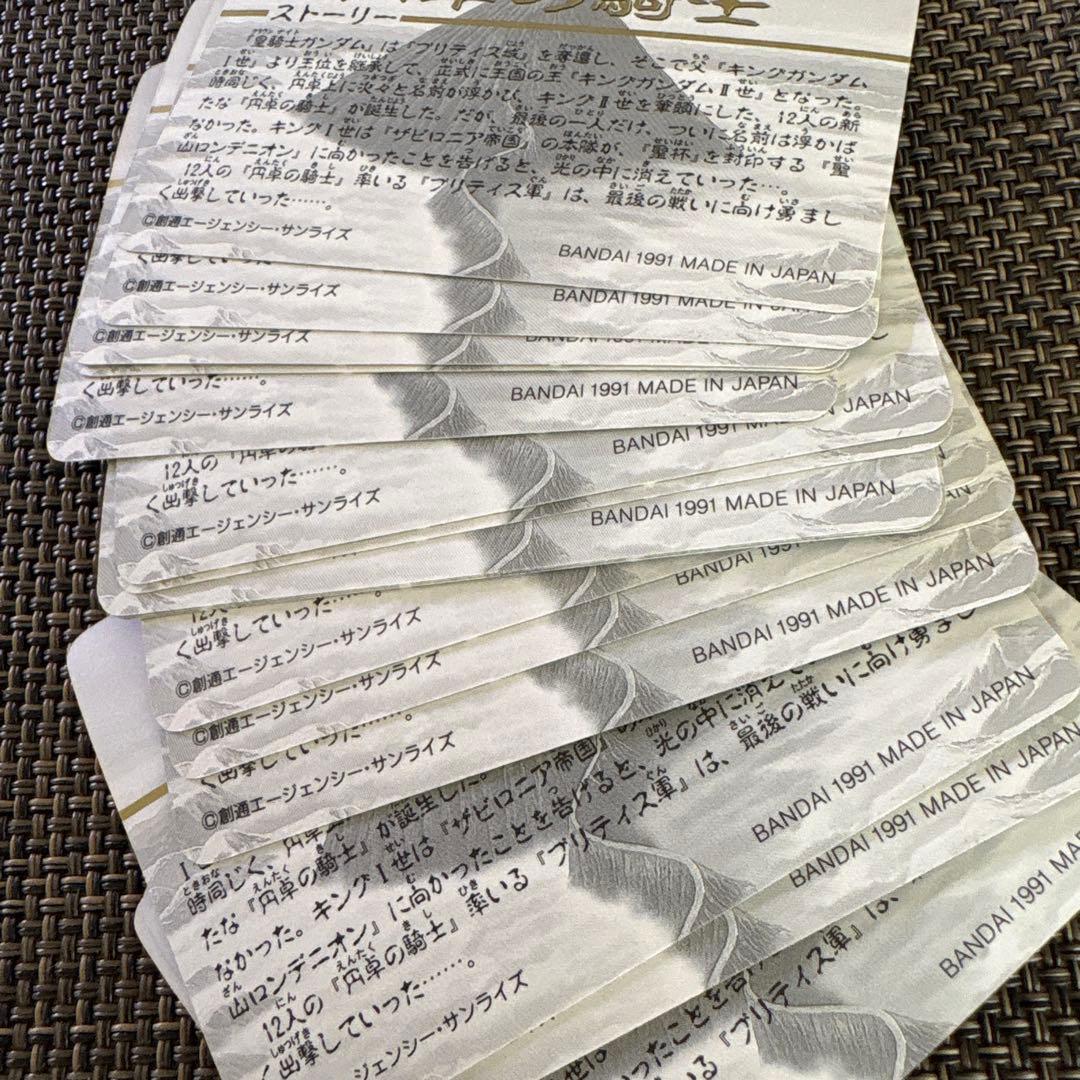 の騎士
ストーリー
『皇騎士ガンダム』は『ブリティス城』を奪還し、そこで父『キングガンダム
I世』より王位を継承して、正式に王国の王『キングガンダムII世』となった。
時同じく、円卓上に次々と名前が浮かび、キングII世を筆頭にした、12人の新
たな『円卓の騎士』が誕生した。だが、最後の一人だけ、ついに名前は浮かば
なかった。キングI世は『ザビロニア帝国』の本隊が、『聖杯』を封印する『聖
山ロンデニオン』に向かったことを告げると、光の中に消えていった…。
12人の『円卓の騎士』率いる『ブリティス軍』は、最後の戦いに向け勇まし
く出撃していった……。
©創通エージェンシー・サンライズ
BANDAI 1991 MADE IN JAPAN
く出撃していった
©創通エージェンシー・サンライズ
BANDAI 1991 MADE IN
©創通エージェンシー・サンライズ
く出撃していった……。
BANDAI 1991 MADE IN JAPAN
©創通エージェンシー・サンライズ
JAPAN
BANDAI 1991
12人の『円卓の騎
く出撃していった……。
©創通エージェンシー・サンライズ
BANDAI 1991 MADE IN JAPAN
BANDAI 1991
く出撃していった……。
©創通エージェンシー・サンライズ
BANDAI 1991 MADE IN JAPAN
©創通エージェンシー・サンライズ
©創通エージェンシー・サンライズ
時同じく、円卓
が誕生した。
たな『円卓の騎士』
なかった。キングI世は『ザビロニア帝国』の
山ロンデニオン』に向かったことを告げると、光の中に消え
12人の『円卓の騎士』率いる『ブリティス軍』は、最後の戦いに向け勇まし
く出撃していった……。
ジェンシー・サンライズ
BANDAI 1991 MADE IN JAPAN
BANDAI 1991 MADE IN JAPAN
かったことを告
『ブリティス軍』は、
BANDAI 1991 MADE